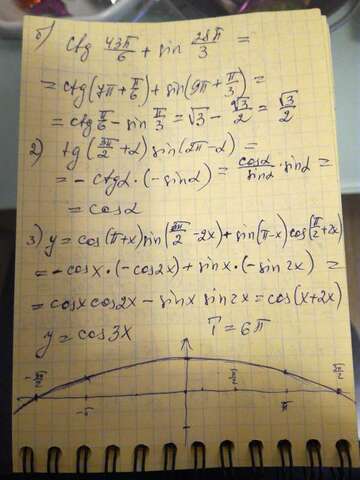 б) ctg 43π/6 + sin 28π/3 =
= ctg(7π + π/6) + sin(9π + π/3) =
= ctg π/6 - sin π/3 = √3 - √3/2 = √3/2
2) tg(3π/2 + α) sin(2π - α) =
= - ctgα · (-sinα) = cosα/sinα · sinα =
= cosα
3) y = cos(π+x) sin(3π/2 - 2x) + sin(π-x) cos(π/2 + 2x)
= -cosx · (-cos2x) + sinx · (-sin2x) =
= cosx cos2x - sinx sin2x = cos(x+2x)
y = cos3x T = 6π
-3π/2 -π π/2 π 3π/2